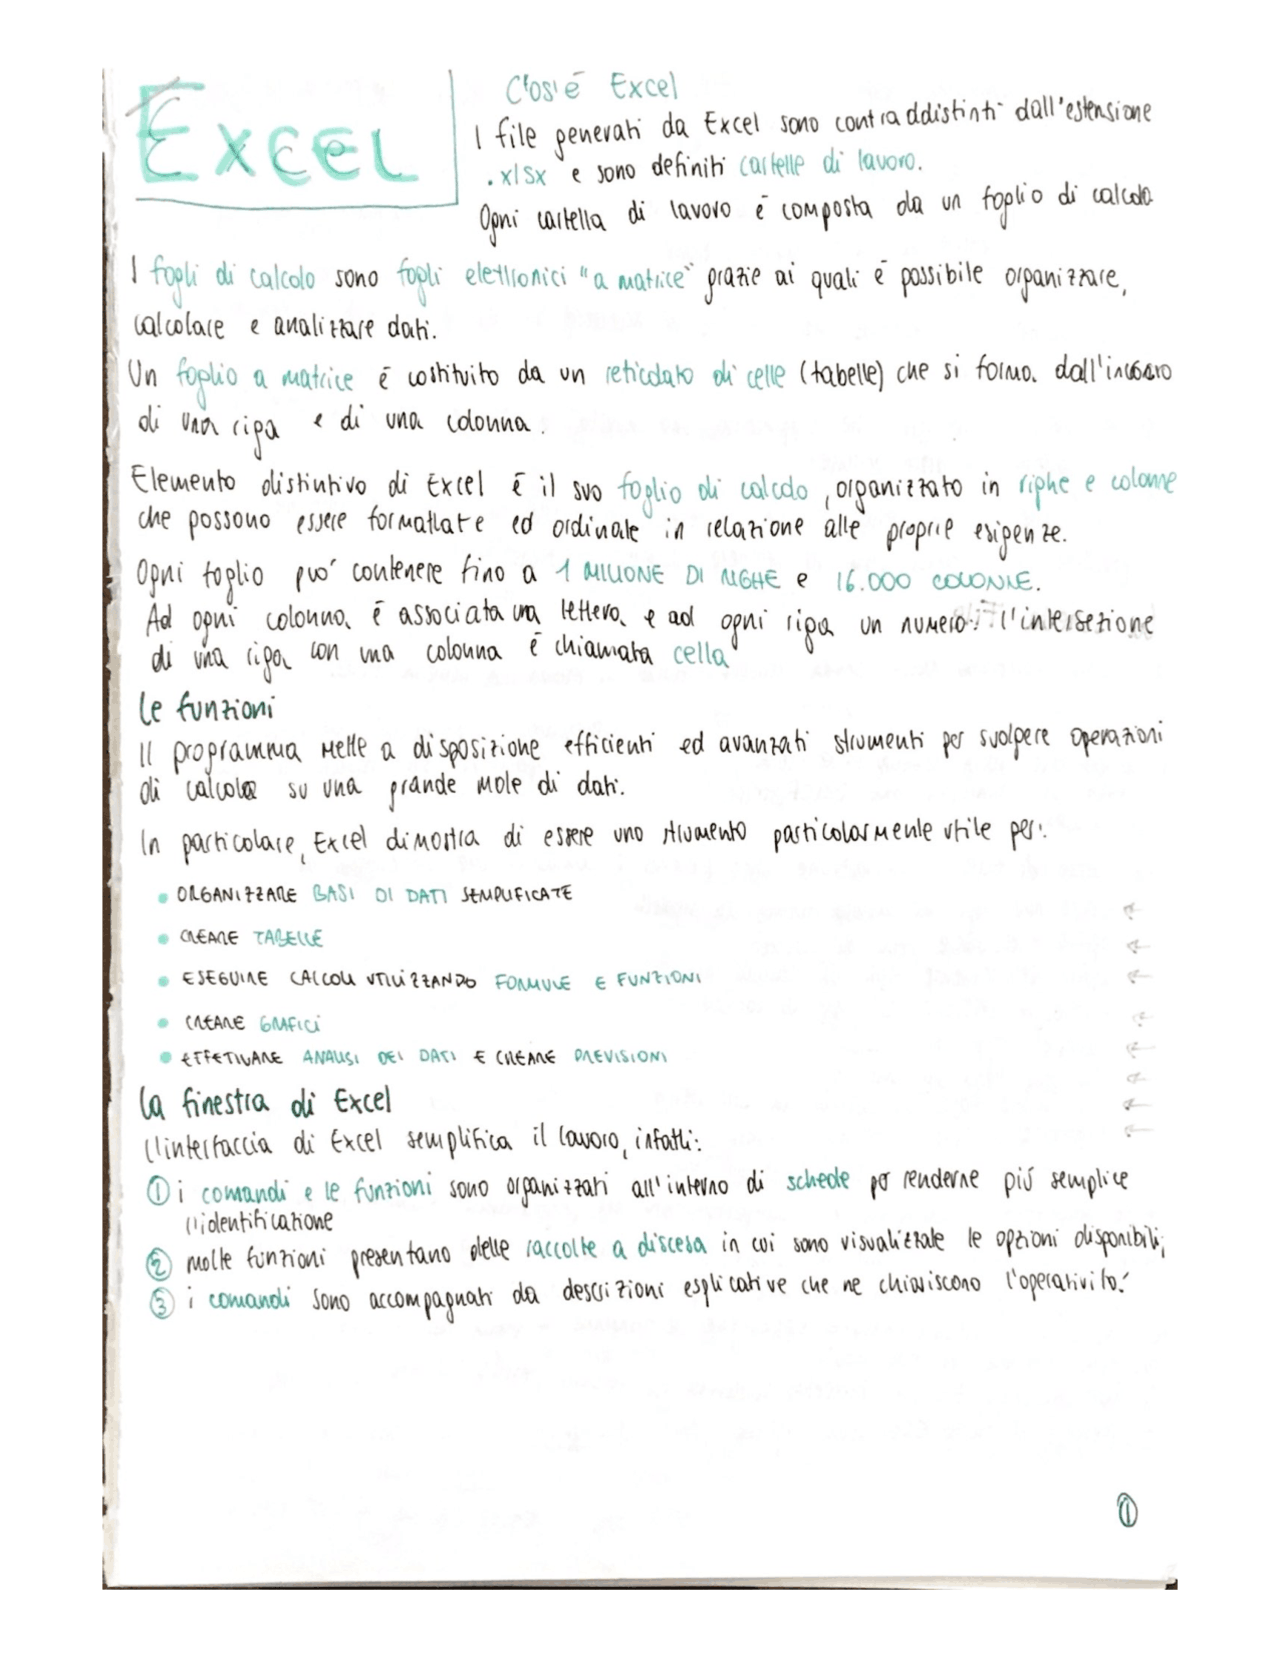 EXCEL
C'os'é Excel
I file generati da Excel sono contraddistinti dall'estensione
.xlsx e sono definiti cartelle di lavoro.
Ogni cartella di lavoro é composta da un foglio di calcolo
I fogli di calcolo sono fogli elettronici "a matrice" grazie ai quali é possibile organizzare,
calcolare e analizzare dati.
Un foglio a matrice é costituito da un reticolato di celle (tabelle) che si forma dall'incrocio
di una riga e di una colonna.
Elemento distintivo di Excel é il suo foglio di calcolo, organizzato in righe e colonne
che possono essere formattate ed ordinate in relazione alle proprie esigenze.
Ogni foglio puó contenere fino a 1 MILIONE DI RIGHE e 16.000 COLONNE.
Ad ogni colonna é associata una lettera e ad ogni riga un numero: l'intersezione
di una riga con una colonna é chiamata cella
Le funzioni
Il programma mette a disposizione efficienti ed avanzati strumenti per svolgere operazioni
di calcolo su una grande mole di dati.
In particolare, Excel dimostra di essere uno strumento particolarmente utile per:
• ORGANIZZARE BASI DI DATI SEMPLIFICATE
• CREARE TABELLE
• ESEGUIRE CALCOLI UTILIZZANDO FORMULE E FUNZIONI
• CREARE GRAFICI
• EFFETTUARE ANALISI DEI DATI E CREARE PREVISIONI
La finestra di Excel
L'interfaccia di Excel semplifica il lavoro, infatti:
① i comandi e le funzioni sono organizzati all'interno di schede per renderne piú semplice
l'identificazione
② molte funzioni presentano delle raccolte a discesa in cui sono visualizzate le opzioni disponibili;
③ i comandi sono accompagnati da descrizioni esplicative che ne chiariscono l'operatività.
①